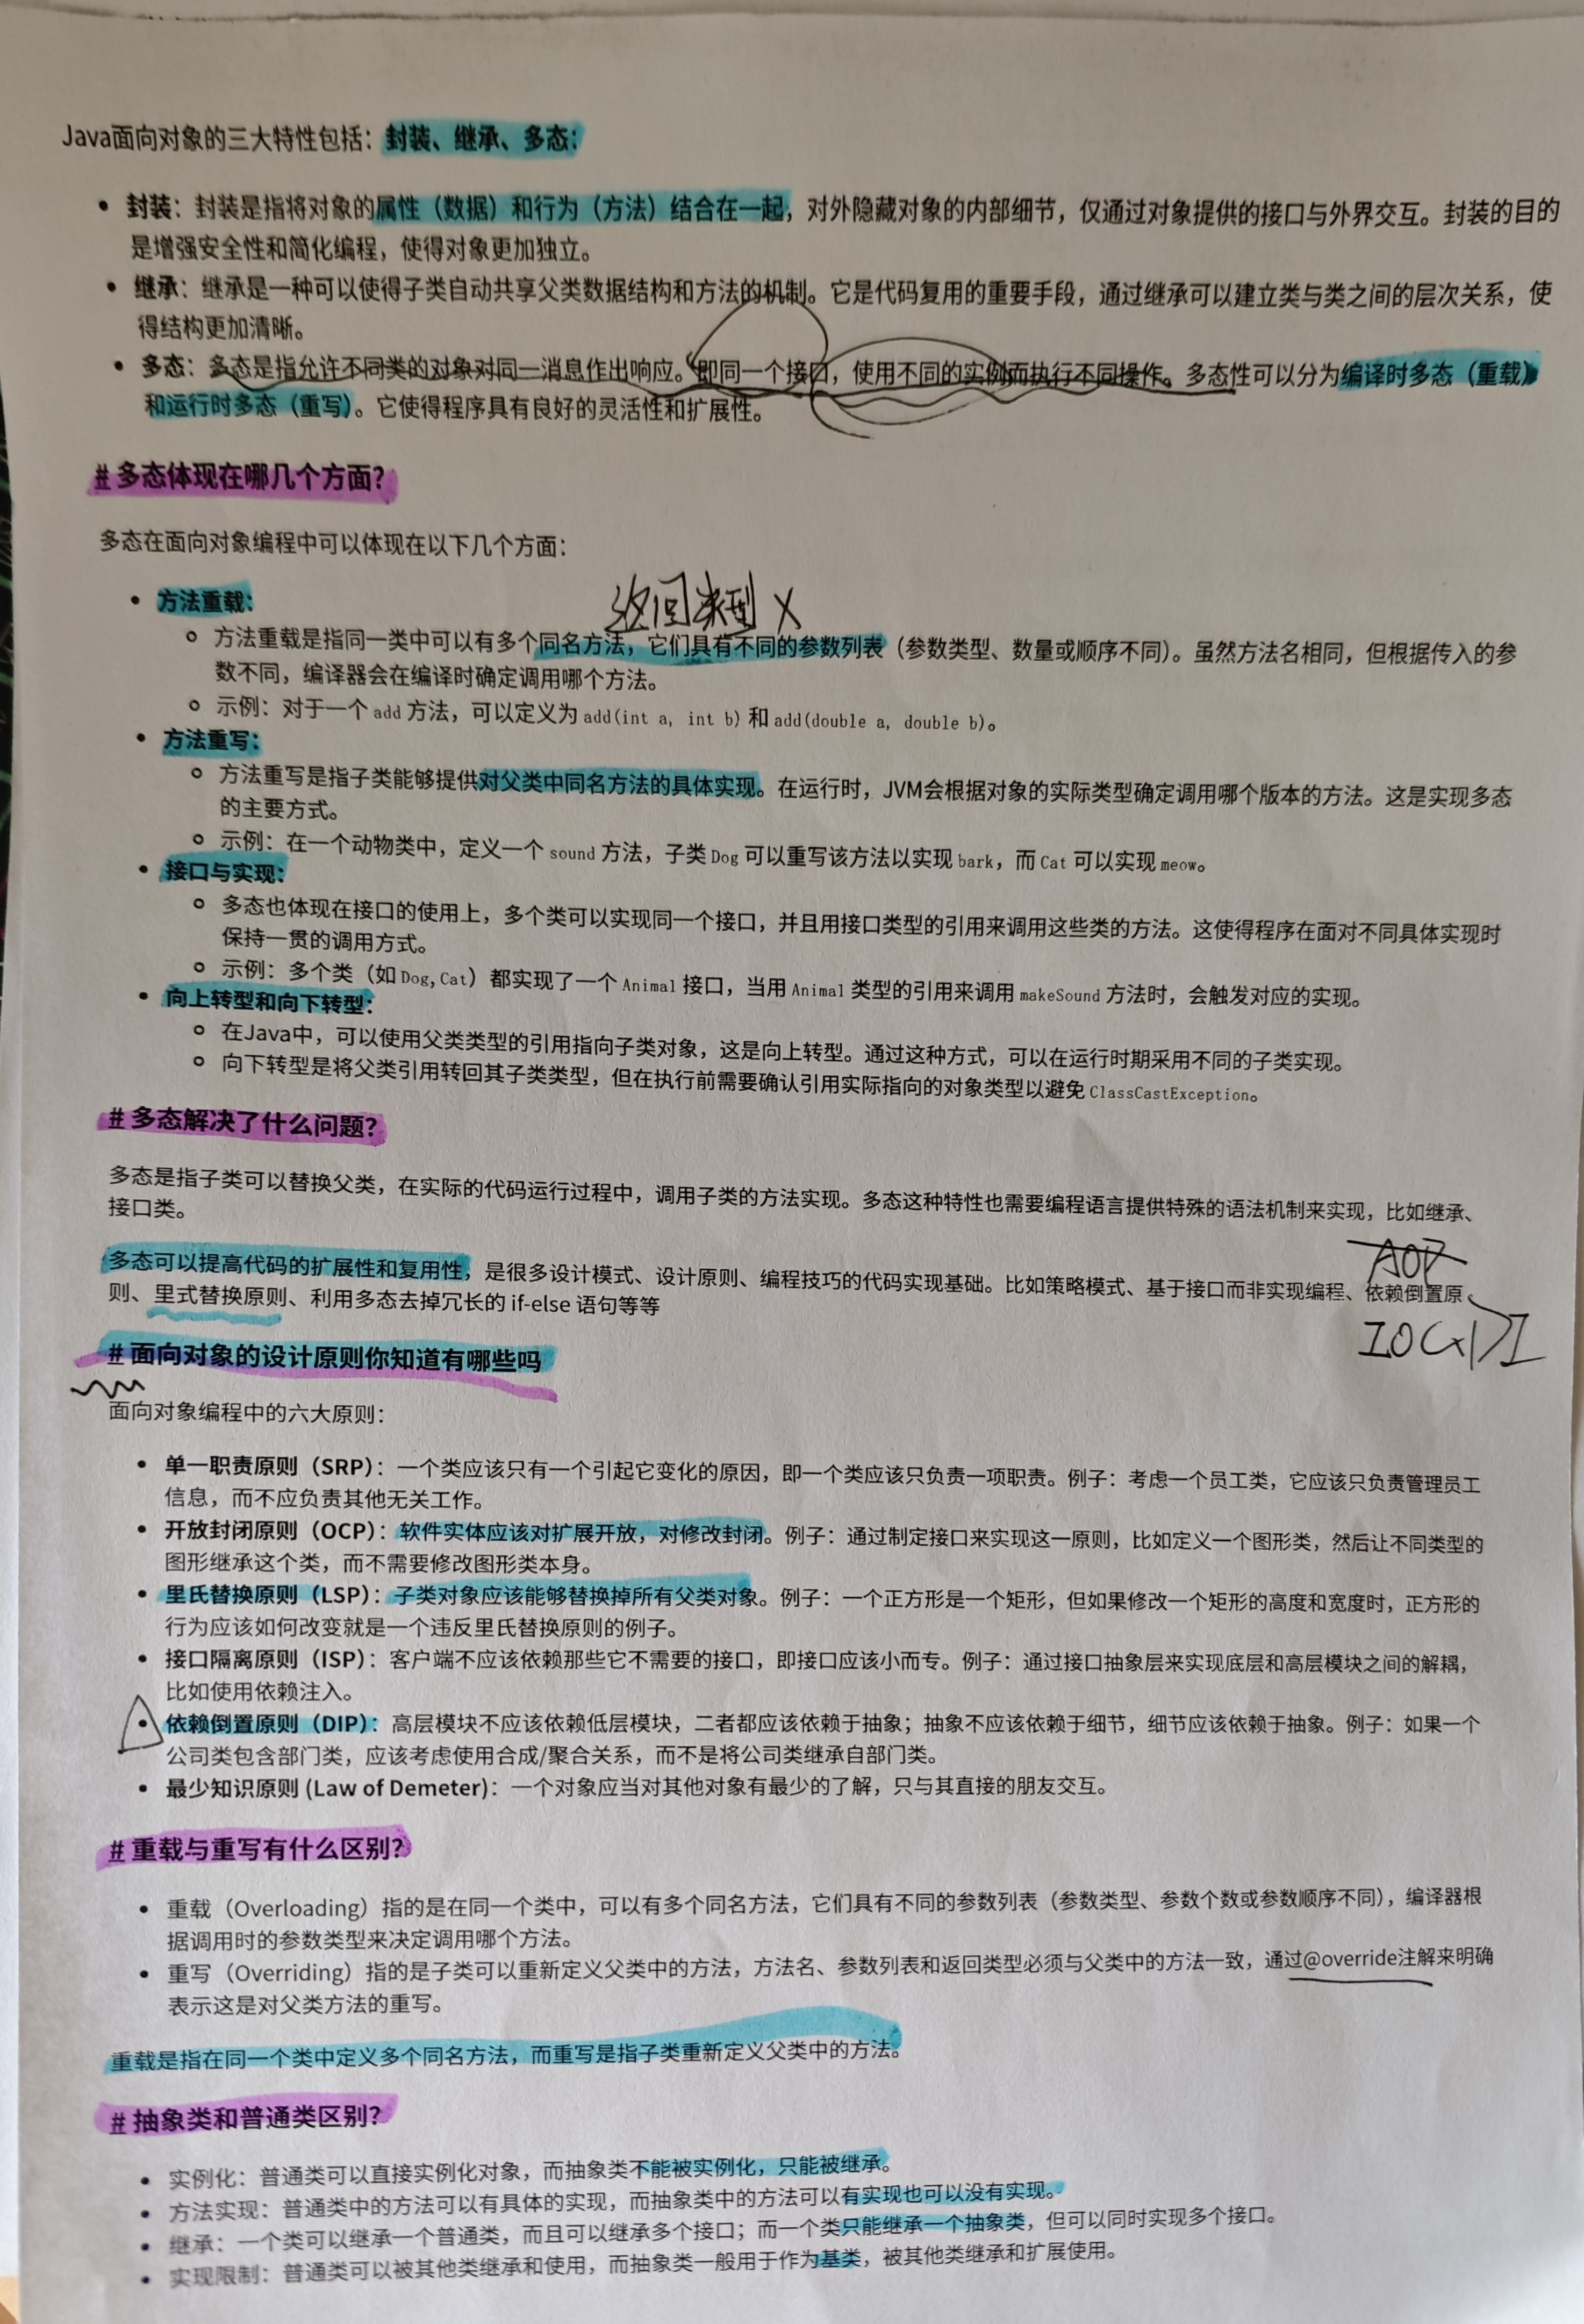 Java面向对象的三大特性包括：封装、继承、多态：
• 封装：封装是指将对象的属性（数据）和行为（方法）结合在一起，对外隐藏对象的内部细节，仅通过对象提供的接口与外界交互。封装的目的
是增强安全性和简化编程，使得对象更加独立。
• 继承：继承是一种可以使得子类自动共享父类数据结构和方法的机制。它是代码复用的重要手段，通过继承可以建立类与类之间的层次关系，使
得结构更加清晰。
• 多态：多态是指允许不同类的对象对同一消息作出响应。即同一个接口，使用不同的实例而执行不同操作。多态性可以分为编译时多态（重载）
和运行时多态（重写）。它使得程序具有良好的灵活性和扩展性。
# 多态体现在哪几个方面？
多态在面向对象编程中可以体现在以下几个方面：
返回类型 X
• 方法重载：
○ 方法重载是指同一类中可以有多个同名方法，它们具有不同的参数列表（参数类型、数量或顺序不同）。虽然方法名相同，但根据传入的参
数不同，编译器会在编译时确定调用哪个方法。
○ 示例：对于一个 add 方法，可以定义为 add(int a, int b) 和 add(double a, double b)。
• 方法重写：
○ 方法重写是指子类能够提供对父类中同名方法的具体实现。在运行时，JVM会根据对象的实际类型确定调用哪个版本的方法。这是实现多态
的主要方式。
○ 示例：在一个动物类中，定义一个 sound 方法，子类 Dog 可以重写该方法以实现 bark，而 Cat 可以实现 meow。
• 接口与实现：
○ 多态也体现在接口的使用上，多个类可以实现同一个接口，并且用接口类型的引用来调用这些类的方法。这使得程序在面对不同具体实现时
保持一贯的调用方式。
○ 示例：多个类（如 Dog, Cat）都实现了一个 Animal 接口，当用 Animal 类型的引用来调用 makeSound 方法时，会触发对应的实现。
• 向上转型和向下转型：
○ 在Java中，可以使用父类类型的引用指向子类对象，这是向上转型。通过这种方式，可以在运行时期采用不同的子类实现。
○ 向下转型是将父类引用转回其子类类型，但在执行前需要确认引用实际指向的对象类型以避免 ClassCastException。
# 多态解决了什么问题？
多态是指子类可以替换父类，在实际的代码运行过程中，调用子类的方法实现。多态这种特性也需要编程语言提供特殊的语法机制来实现，比如继承、
接口类。
AOP
多态可以提高代码的扩展性和复用性，是很多设计模式、设计原则、编程技巧的代码实现基础。比如策略模式、基于接口而非实现编程、依赖倒置原
则、里式替换原则、利用多态去掉冗长的 if-else 语句等等
# 面向对象的设计原则你知道有哪些吗
面向对象编程中的六大原则：
• 单一职责原则（SRP）：一个类应该只有一个引起它变化的原因，即一个类应该只负责一项职责。例子：考虑一个员工类，它应该只负责管理员工
信息，而不应负责其他无关工作。
• 开放封闭原则（OCP）：软件实体应该对扩展开放，对修改封闭。例子：通过制定接口来实现这一原则，比如定义一个图形类，然后让不同类型的
图形继承这个类，而不需要修改图形类本身。
• 里氏替换原则（LSP）：子类对象应该能够替换掉所有父类对象。例子：一个正方形是一个矩形，但如果修改一个矩形的高度和宽度时，正方形的
行为应该如何改变就是一个违反里氏替换原则的例子。
• 接口隔离原则（ISP）：客户端不应该依赖那些它不需要的接口，即接口应该小而专。例子：通过接口抽象层来实现底层和高层模块之间的解耦，
比如使用依赖注入。
• 依赖倒置原则（DIP）：高层模块不应该依赖低层模块，二者都应该依赖于抽象；抽象不应该依赖于细节，细节应该依赖于抽象。例子：如果一个
公司类包含部门类，应该考虑使用合成/聚合关系，而不是将公司类继承自部门类。
• 最少知识原则 (Law of Demeter)：一个对象应当对其他对象有最少的了解，只与其直接的朋友交互。
# 重载与重写有什么区别？
• 重载（Overloading）指的是在同一个类中，可以有多个同名方法，它们具有不同的参数列表（参数类型、参数个数或参数顺序不同），编译器根
据调用时的参数类型来决定调用哪个方法。
• 重写（Overriding）指的是子类可以重新定义父类中的方法，方法名、参数列表和返回类型必须与父类中的方法一致，通过@override注解来明确
表示这是对父类方法的重写。
重载是指在同一个类中定义多个同名方法，而重写是指子类重新定义父类中的方法。
# 抽象类和普通类区别？
• 实例化：普通类可以直接实例化对象，而抽象类不能被实例化，只能被继承。
• 方法实现：普通类中的方法可以有具体的实现，而抽象类中的方法可以有实现也可以没有实现。
• 继承：一个类可以继承一个普通类，而且可以继承多个接口；而一个类只能继承一个抽象类，但可以同时实现多个接口。
• 实现限制：普通类可以被其他类继承和使用，而抽象类一般用于作为基类，被其他类继承和扩展使用。